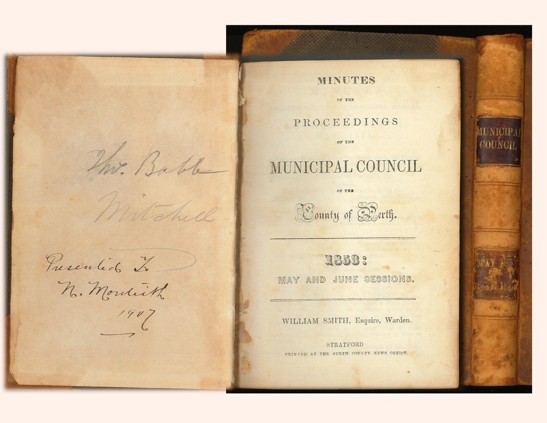 Tho. Babb
Mitchell
Presented To
N. Monteith
1907
MINUTES
OF THE
PROCEEDINGS
OF THE
MUNICIPAL COUNCIL
OF THE
County of Perth.
1853:
MAY AND JUNE SESSIONS.
WILLIAM SMITH, Esquire, Warden.
STRATFORD
PRINTED AT THE PERTH COUNTY NEWS OFFICE.
MUNICIPAL
COUNCIL